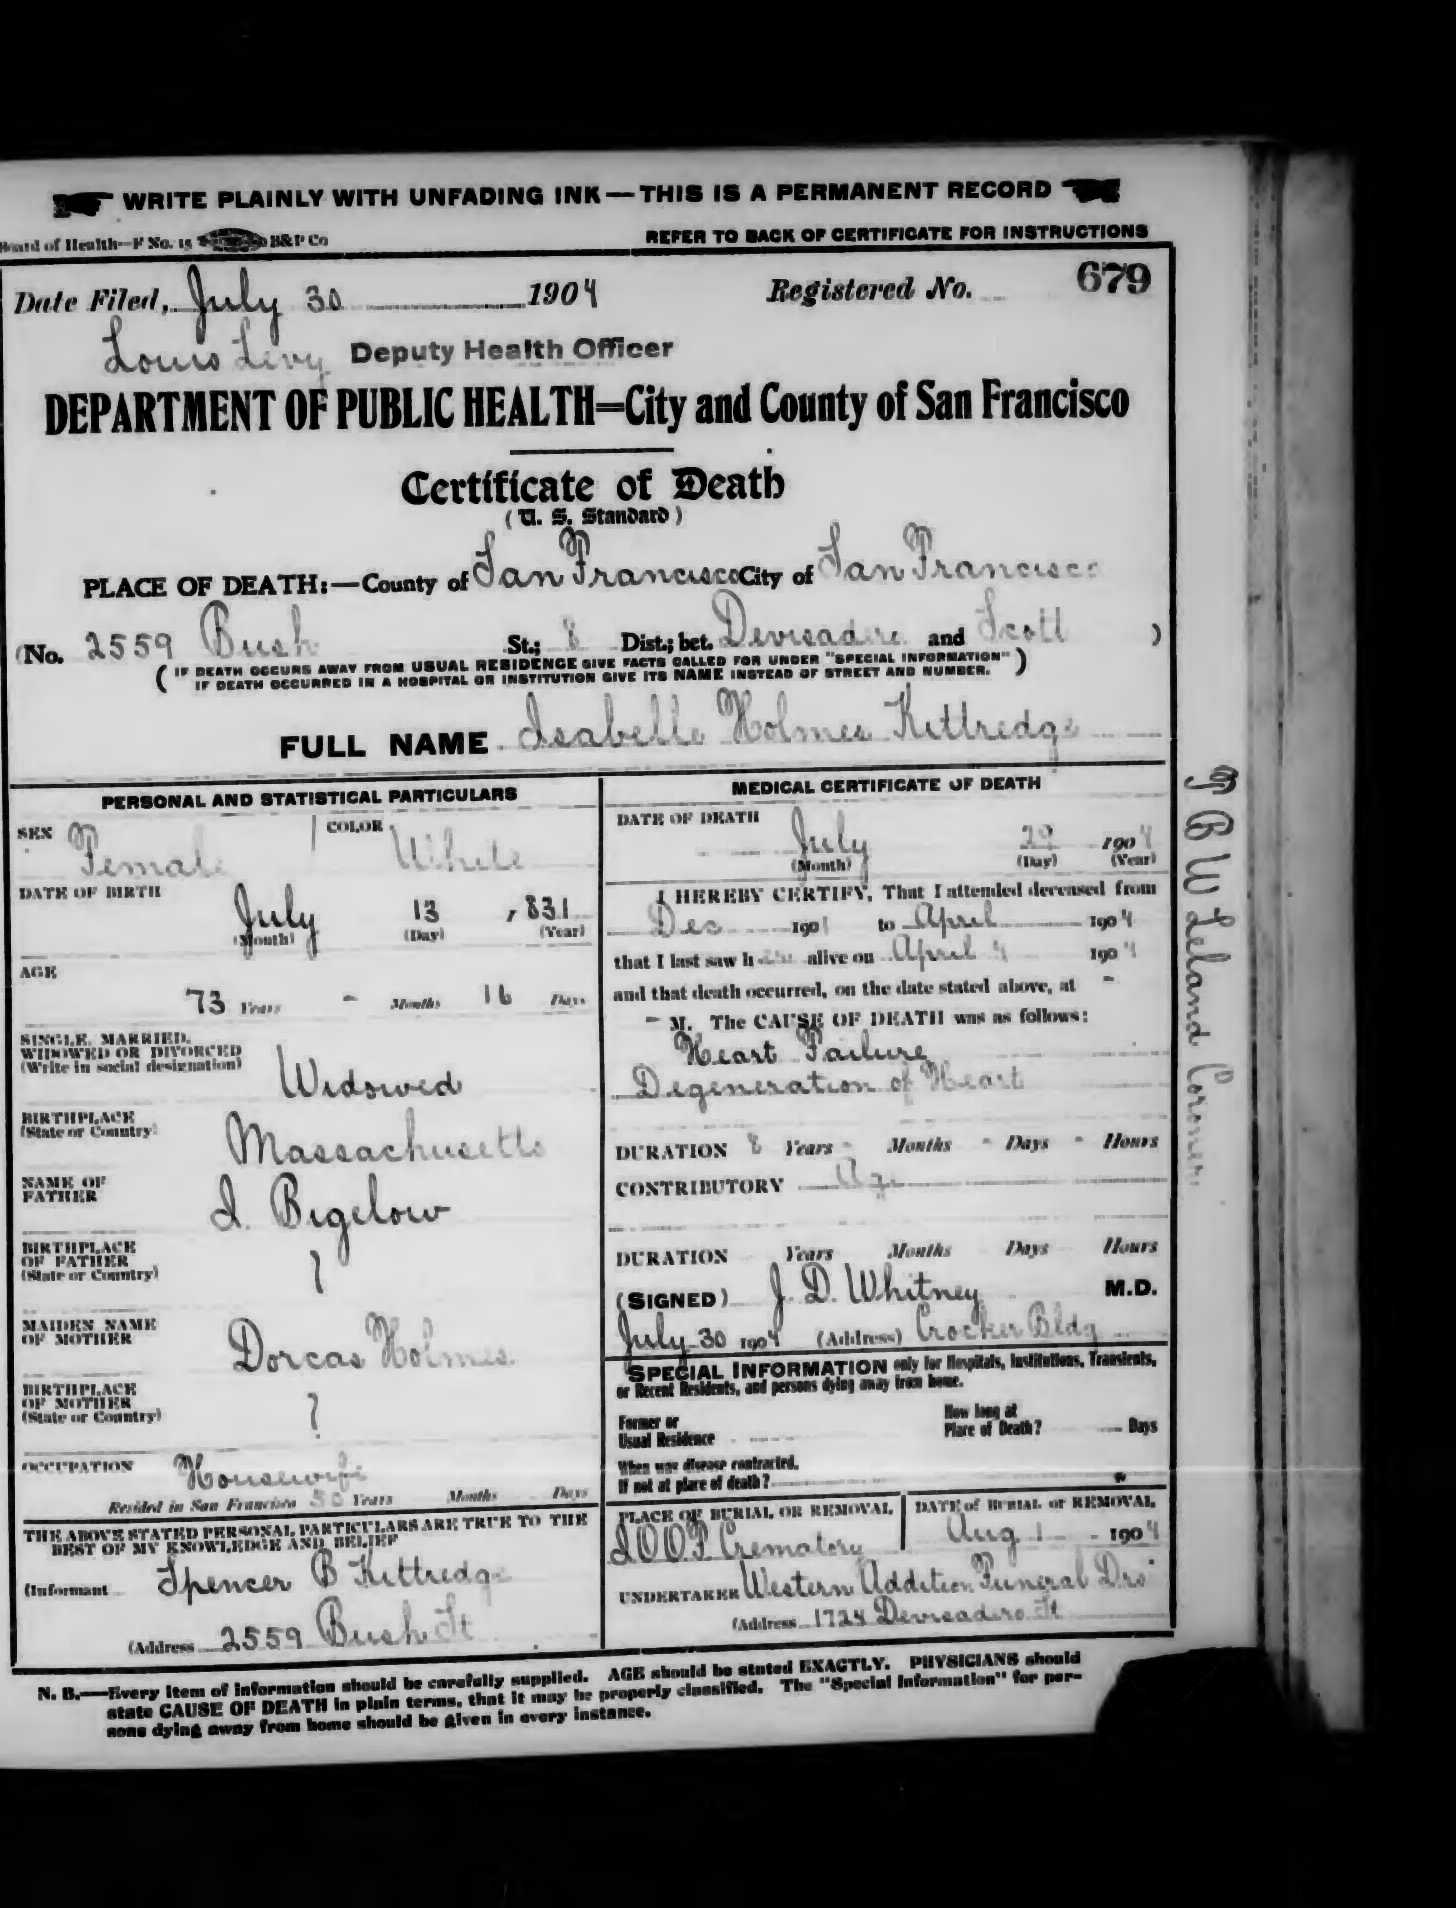 WRITE PLAINLY WITH UNFADING INK — THIS IS A PERMANENT RECORD
Board of Health—F No. 15 B&P Co
REFER TO BACK OF CERTIFICATE FOR INSTRUCTIONS
Date Filed, July 30 1904 Registered No. 679
Louis Levy Deputy Health Officer
DEPARTMENT OF PUBLIC HEALTH=City and County of San Francisco
Certificate of Death
(U. S. Standard)
PLACE OF DEATH:—County of San Francisco City of San Francisco
(No. 2559 Bush St.; 8 Dist.; bet. Devisadero and Scott )
( IF DEATH OCCURS AWAY FROM USUAL RESIDENCE GIVE FACTS CALLED FOR UNDER "SPECIAL INFORMATION" )
IF DEATH OCCURRED IN A HOSPITAL OR INSTITUTION GIVE ITS NAME INSTEAD OF STREET AND NUMBER.
FULL NAME Isabelle Holmes Kittredge
PERSONAL AND STATISTICAL PARTICULARS
SEX Female COLOR White
DATE OF BIRTH
July 13 , 831
(Month) (Day) (Year)
AGE
73 Years - Months 16 Days
SINGLE, MARRIED,
WIDOWED OR DIVORCED
(Write in social designation)
Widowed
BIRTHPLACE
(State or Country)
Massachusetts
NAME OF
FATHER
I. Bigelow
BIRTHPLACE
OF FATHER
(State or Country)
?
MAIDEN NAME
OF MOTHER
Dorcas Holmes
BIRTHPLACE
OF MOTHER
(State or Country)
?
OCCUPATION Housewife
Resided in San Francisco 50 Years Months Days
THE ABOVE STATED PERSONAL PARTICULARS ARE TRUE TO THE
BEST OF MY KNOWLEDGE AND BELIEF
(Informant Spencer B Kittredge
(Address 2559 Bush St
MEDICAL CERTIFICATE OF DEATH
DATE OF DEATH
July 29 1904
(Month) (Day) (Year)
I HEREBY CERTIFY, That I attended deceased from
Dec 1901 to April 1904
that I last saw her alive on April 4 1904
and that death occurred, on the date stated above, at -
- M. The CAUSE OF DEATH was as follows:
Heart Failure
Degeneration of Heart
DURATION 8 Years - Months - Days - Hours
CONTRIBUTORY Age
DURATION Years Months Days Hours
(SIGNED) J. D. Whitney M.D.
July 30 1904 (Address) Crocker Bldg
SPECIAL INFORMATION only for Hospitals, Institutions, Transients,
or Recent Residents, and persons dying away from home.
Former or
Usual Residence
How long at
Place of Death? Days
When was disease contracted,
If not at place of death?
PLACE OF BURIAL OR REMOVAL
I O O F. Crematory
DATE of BURIAL or REMOVAL
Aug 1 1904
UNDERTAKER Western Addition Funeral Drs
(Address 1724 Devisadero St
N. B.—Every item of information should be carefully supplied. AGE should be stated EXACTLY. PHYSICIANS should
state CAUSE OF DEATH in plain terms, that it may be properly classified. The "Special Information" for per-
sons dying away from home should be given in every instance.
T B W Leland Coroner